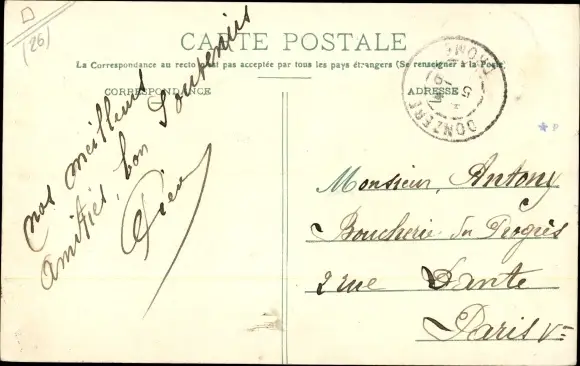 (26)
CARTE POSTALE
La Correspondance au recto n'est pas acceptée par tous les pays étrangers (Se renseigner à la Poste)
CORRESPONDANCE
ADRESSE
DONZERE
DROME
nos meilleurs
amitiés, bon Souvenirs
Monsieur, Antony
Boucherie du Progrès
2 rue Dante
Paris Ve